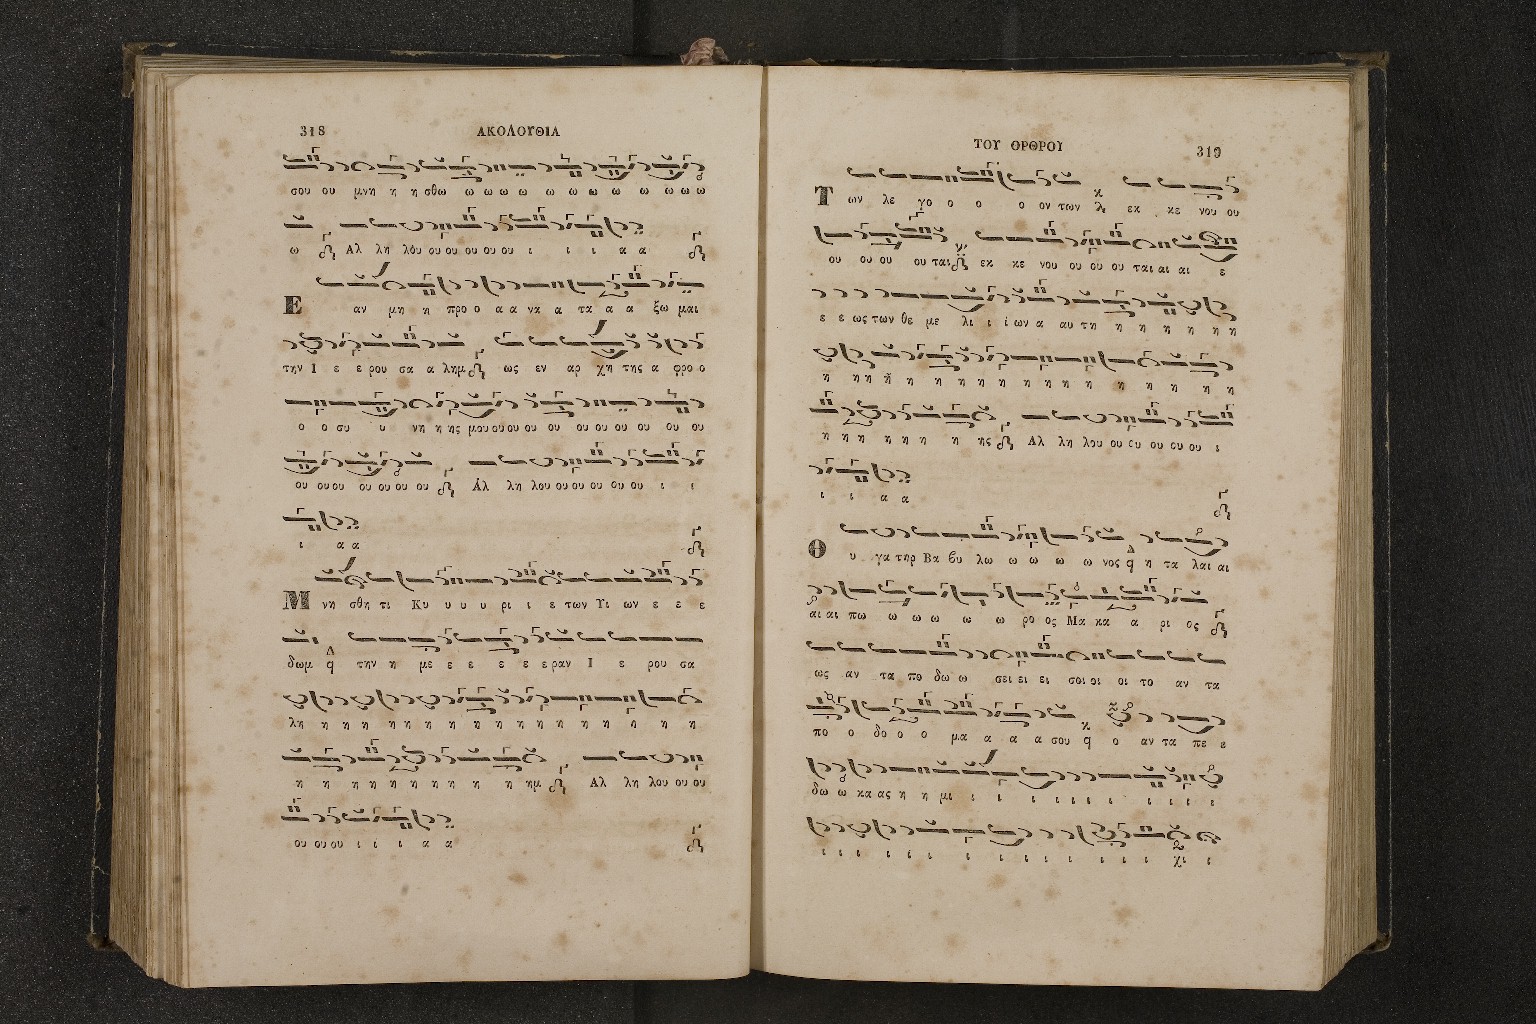 318 ΑΚΟΛΟΥΘΙΑ
σου ου μνη η η σθω ω ω ω ω ω ω ω ω ω ω ω ω
ω Αλ λη λου ου ου ου ου ου ι ι ι α α
Ε αν μη η προ ο α α να α τα α α ξω μαι
την Ι ε ε ρου σα α λημ ως εν αρ χη της α φρο ο
ο ο συ υ νη η ης μου ου ου ου ου ου ου ου ου ου
ου ου ου ου ου ου ου Αλ λη λου ου ου ου ου ου ι ι
ι α α
Μ νη σθη τι Κυ υ υ υ ρι ι ε των Υι ων ε ε ε
δωμ την η με ε ε ε ε ε ραν Ι ε ρου σα
λη η η η η η η η η η η η η η η η
η η η η η η η η η ημ Αλ λη λου ου ου
ου ου ου ι ι ι α α
ΤΟΥ ΟΡΘΡΟΥ 319
Τ ων λε γο ο ο ο ον των εκ κε νου ου
ου ου ου ου ται εκ κε νου ου ου ου ται αι αι ε
ε ε ως των θε με λι ι ι ων α αυ τη η η η η η η
η η η η η η η η η η η η η η η η
η η η η η η η ης Αλ λη λου ου ου ου ου ου ι
ι ι α α
Θ υ γα τηρ Βα βυ λω ω ω ω ω νος η τα λαι αι
αι αι πω ω ω ω ω ω ρο ος Μα κα α ρι ος
ως αν τα πο δω ω σει ει ει σοι οι οι το αν τα
πο ο δο ο ο μα α α α σου ο αν τα πε ε
δω ω κα ας η η μι ι ι ι ι ι ι ι ι ι ι ι
ι ι ι ι ι ι ι ι ι ι ι ι ι ι χι ι